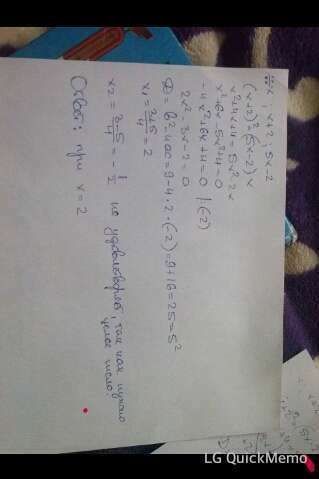 x ; x+2 ; 5x-2
(x+2)²=(5x-2) x
x²+4x+4=5x² 2x
x²+6x-5x²+4=0
-4x²+6x+4=0 |:(2)
2x²-3x-2=0
D=b²-4ac=9-4·2·(-2)=9+16=25=5²
x₁=3+5/4=2
x₂=3-5/4=-1/2 не удовлетворяет, так как нужно
целое число.
Ответ: при x=2
LG QuickMemo